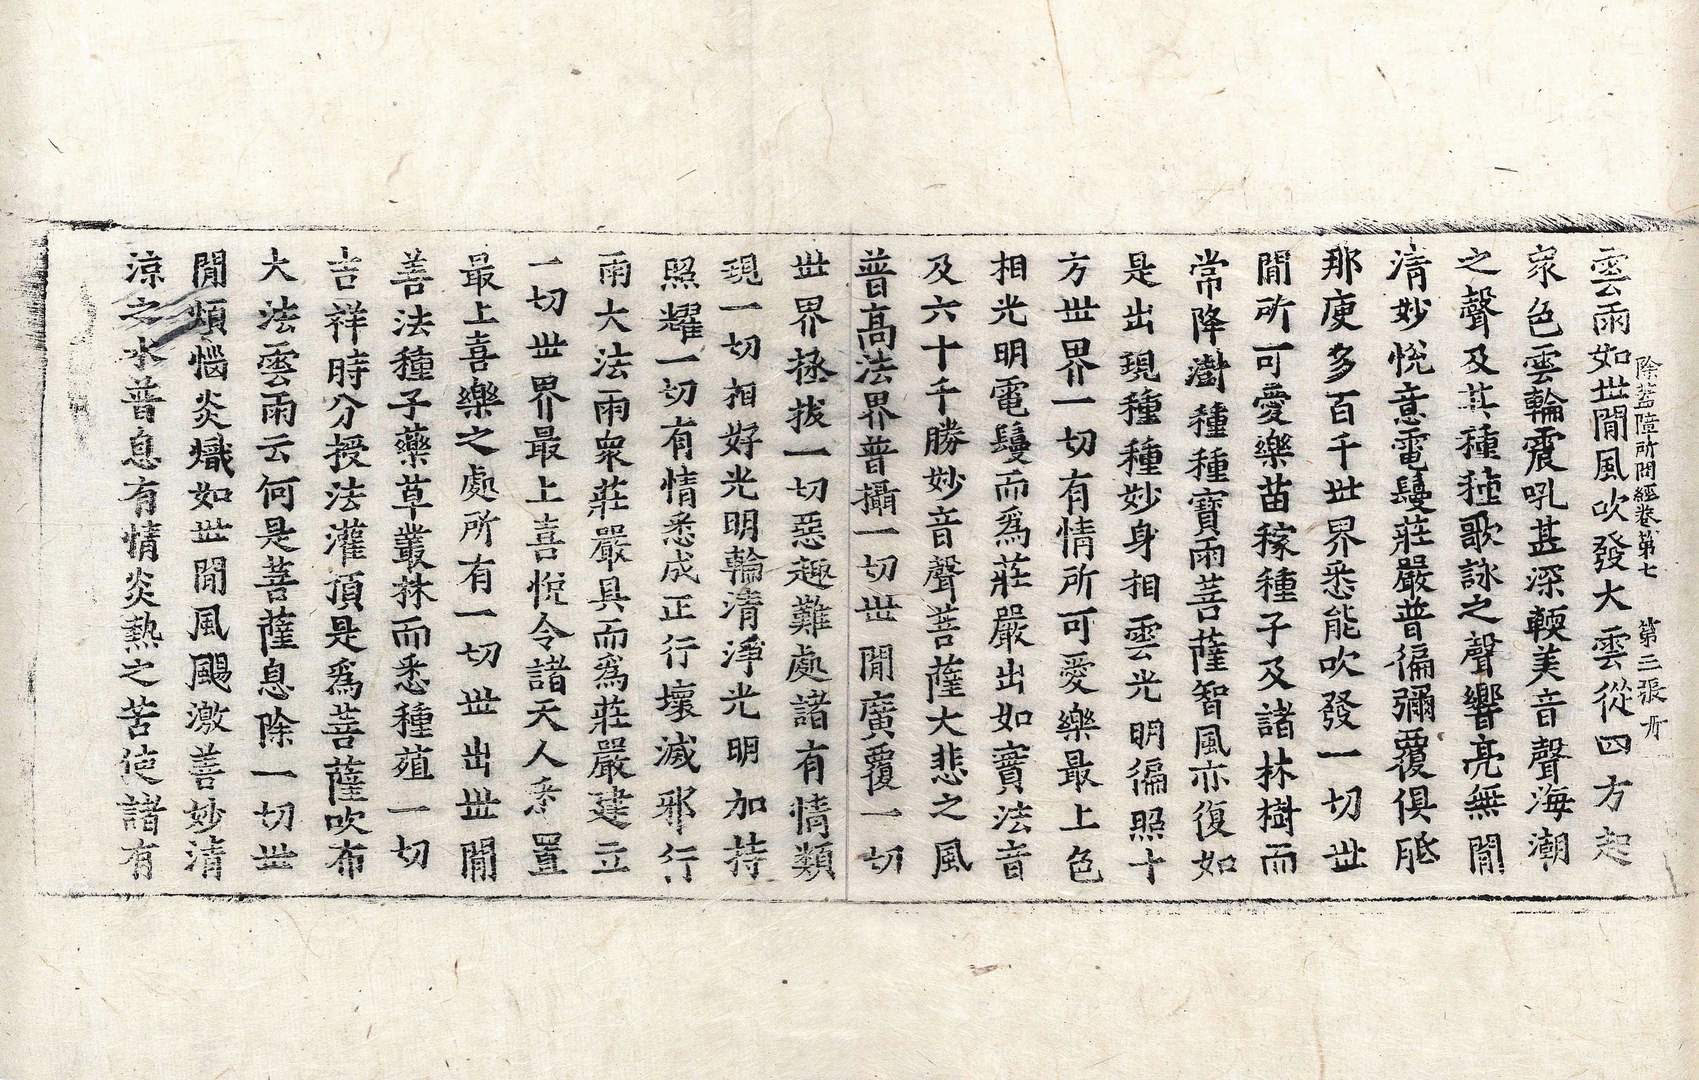 除蓋障所問經卷第七　第二張　卉
雲雨如世閒風吹發大雲從四方起
衆色雲輪震吼甚深輭美音聲海潮
之聲及其種種歌詠之聲響亮無閒
淸妙悅意電鬘莊嚴普徧彌覆俱胝
那庾多百千世界悉能吹發一切世
閒所可愛樂苗稼種子及諸林樹而
常降澍種種寶雨菩薩智風亦復如
是出現種種妙身相雲光明徧照十
方世界一切有情所可愛樂最上色
相光明電鬘而爲莊嚴出如實法音
及六十千勝妙音聲菩薩大悲之風
普髙法界普攝一切世閒廣覆一切
世界拯拔一切惡趣難處諸有情類
現一切相好光明輪清淨光明加持
照耀一切有情悉成正行壞滅邪行
雨大法雨衆莊嚴具而爲莊嚴建立
一切世界最上喜悅令諸天人悉置
最上喜樂之處所有一切世出世閒
善法種子藥草叢林而悉種殖一切
吉祥時分授法灌頂是爲菩薩吹布
大法雲雨云何是菩薩息除一切世
閒煩惱炎熾如世閒風颺激善妙清
涼之水普息有情炎熱之苦使諸有